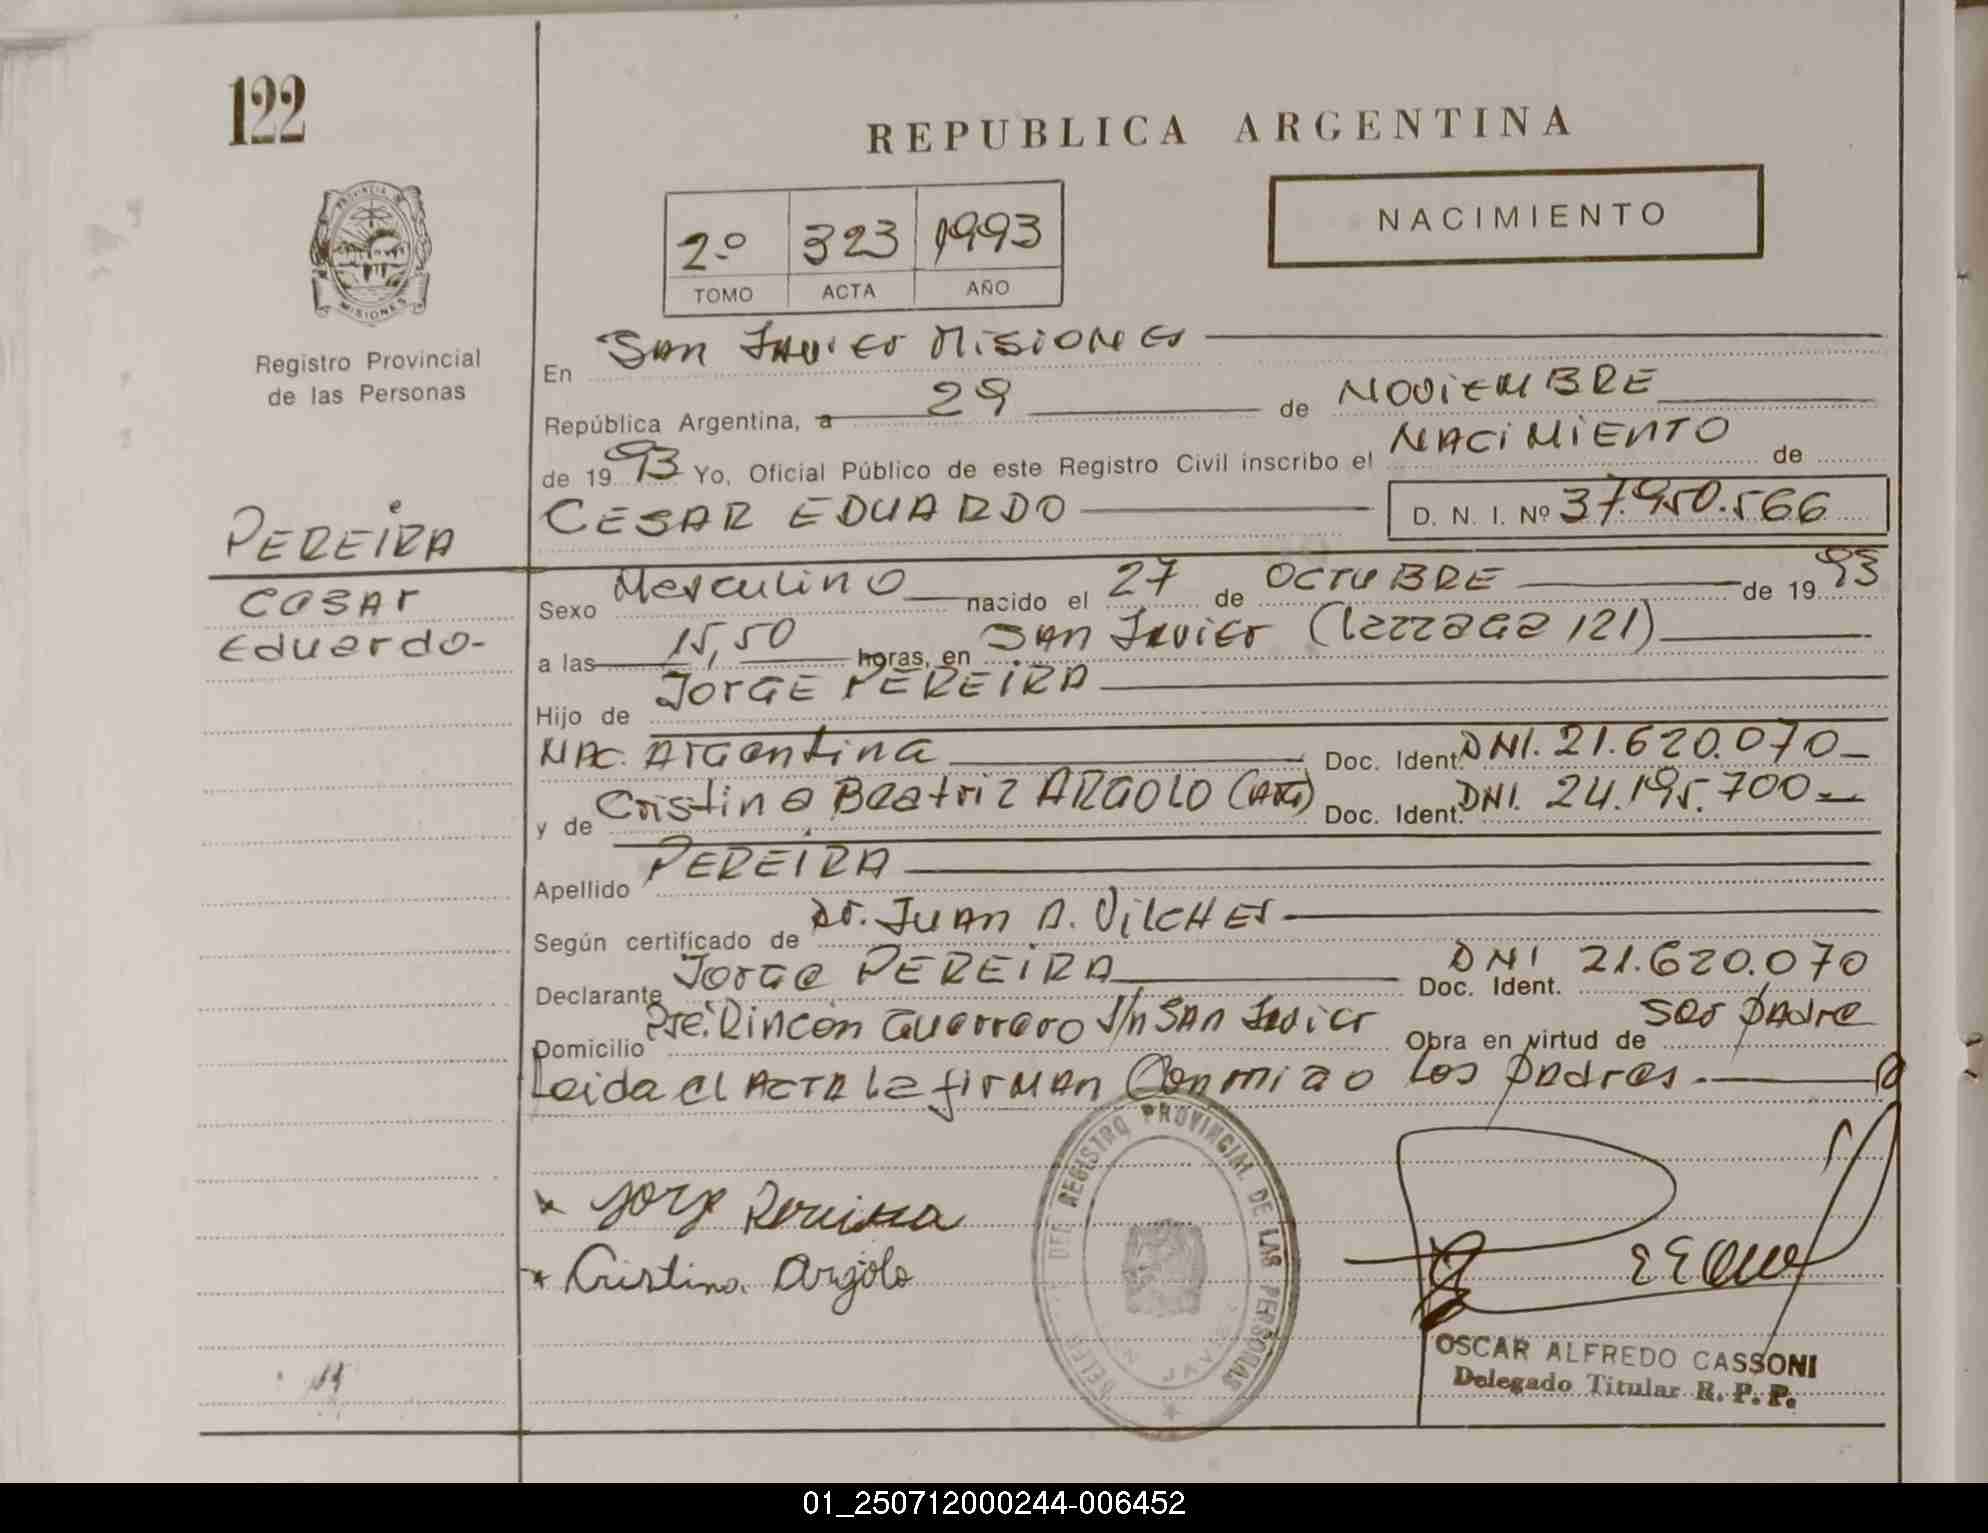 122
REPUBLICA ARGENTINA
NACIMIENTO
2º 323 1993
TOMO ACTA AÑO
PROVINCIA DE
MISIONES
Registro Provincial
de las Personas
En San Javier Misiones
República Argentina, a 29 de NOVIEMBRE
de 1993 Yo, Oficial Público de este Registro Civil inscribo el NACIMIENTO de
CESAR EDUARDO D. N. I. Nº 37.950.566
PEREIRA
Cesar
Eduardo-
Sexo Masculino nacido el 27 de OCTUBRE de 1993
a las 15,50 horas, en San Javier (Larraga 121)
Hijo de JORGE PEREIRA
NAC. Argentina Doc. Ident. DNI. 21.620.070
y de Cristina Beatriz ARGOLO (ARG) Doc. Ident. DNI. 24.195.700
Apellido PEREIRA
Según certificado de Dr. JUAN A. VILCHES
Declarante Jorge PEREIRA Doc. Ident. DNI 21.620.070
Domicilio Pje. Rincón Guerrero S/n San Javier Obra en virtud de ser padre
Leida el ACTA la firman Conmigo los padres.
DEL REGISTRO PROVINCIAL DE LAS PERSONAS
x Jorge Pereira
x Cristina Argolo
OSCAR ALFREDO CASSONI
Delegado Titular R. P. P.
01_250712000244-006452